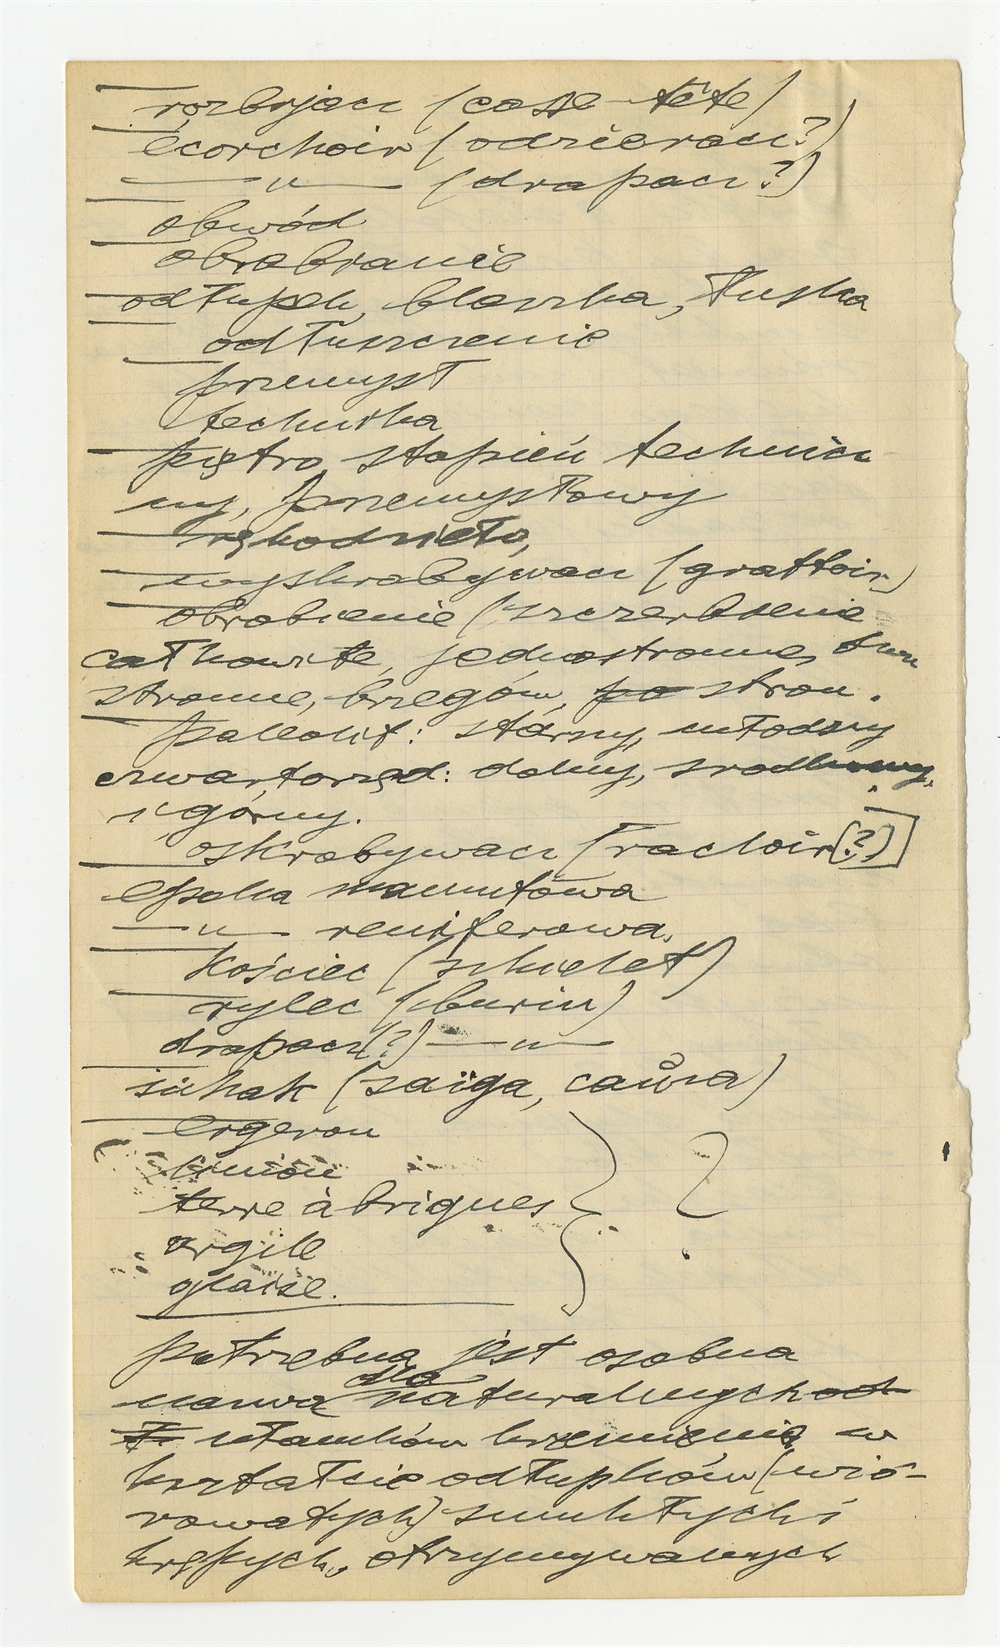 rozbijacz (casse-tête)
écorchoir (odzieracz?)
—„— (drapacz?)
obwód
obrabianie
odłupek, blaszka, łuska
odłuszczenie
przemysł
technika
piętro, stopień technicz
ny, przemysłowy
rękodzieło,
wyskrobywacz (grattoir)
obrobienie (szczerbienie
całkowite, jednostronne, dwu
stronne, brzegów, po stron.
paleolit: starszy, młodszy
czwartorzęd: dolny, środkowy,
i górny.
oskrobywacz (racloir(?)]
epoka mamutowa
—„— reniferowa.
kościec (szkielet)
rylec (burin)
drapacz(?) —„—
suhak (saiga, сайга)
ergeron
limon
terre à briques } ?
argile
glaise.
potrzebna jest osobna
nazwa dla naturalnych od
ł. ułamków krzemienia w
kształcie odłupków (wió-
rowatych) smukłych i
krępych, otrzymywanych